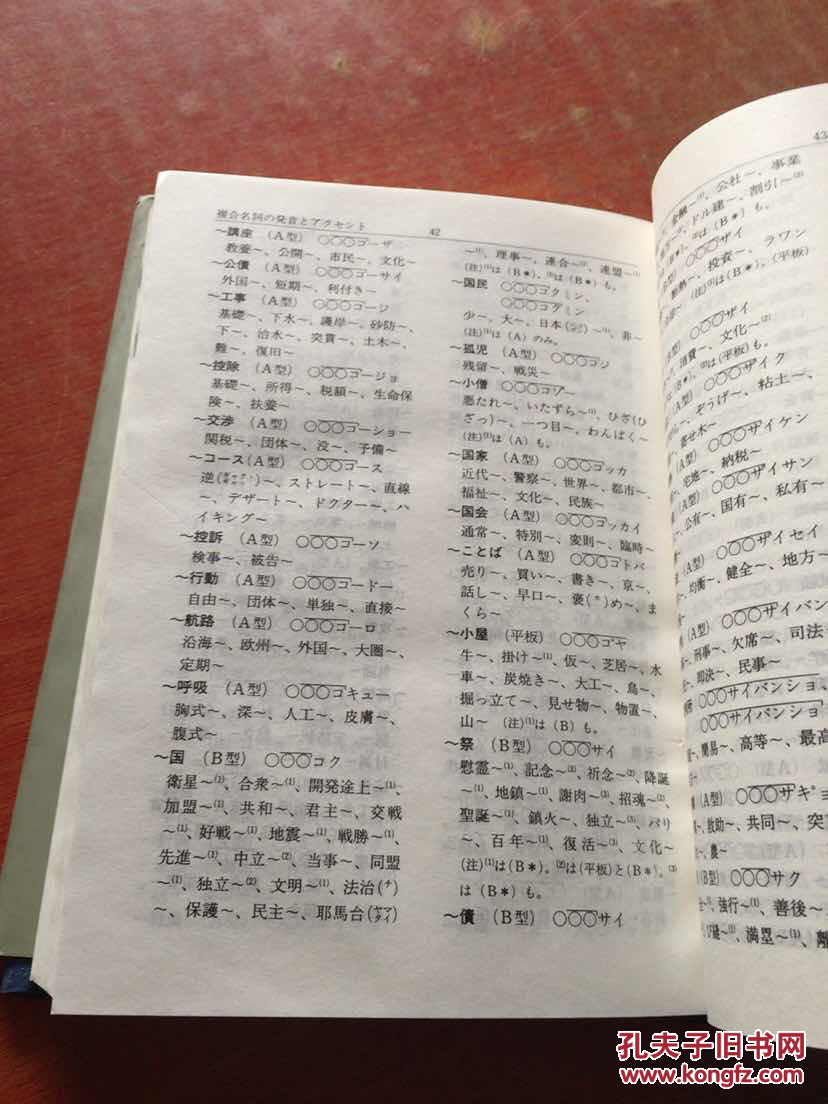 複合名詞の発音とアクセント
42
～講座 (A型) ○○○コーザ
教養～、公開～、市民～、文化～
～公債 (A型) ○○○コーサイ
外国～、短期～、利付き～
～工事 (A型) ○○○コージ
基礎～、下水～、護岸～、砂防～、
下～、治水～、突貫～、土木～、
難～、復旧～
～控除 (A型) ○○○コージョ
基礎～、所得～、税額～、生命保
険～、扶養～
～交渉 (A型) ○○○コーショー
関税～、団体～、没～、予備～
～コース(A型) ○○○コース
逆()～、ストレート～、直線
～、デザート～、ドクター～、ハ
イキング～
～控訴 (A型) ○○○コーソ
検事～、被告～
～行動 (A型) ○○○コードー
自由～、団体～、単独～、直接～
～航路 (A型) ○○○コーロ
沿海～、欧州～、外国～、大圏～、
定期～
～呼吸 (A型) ○○○コキュー
胸式～、深～、人工～、皮膚～、
腹式～
～国 (B型) ○○○コク
衛星～⁽¹⁾、合衆～⁽¹⁾、開発途上～⁽¹⁾、
加盟～⁽¹⁾、共和～、君主～、交戦
～⁽¹⁾、好戦～⁽¹⁾、地震～⁽¹⁾、戦勝～⁽¹⁾、
先進～⁽¹⁾、中立～⁽²⁾、当事～、同盟
～⁽¹⁾、独立～⁽¹⁾、文明～⁽¹⁾、法治(チ)
～、保護～、民主～、耶馬台(ヤマタイ)
～⁽¹⁾、理事～、連合～⁽¹⁾、連盟～⁽¹⁾
(注)⁽¹⁾は(B*)、⁽²⁾は(B*)も。
～国民 ○○○コクミン、
○○○コクミン
少～、大～、日本()～⁽¹⁾、非～
(注)⁽¹⁾は(A)のみ。
～孤児 (A型) ○○○コジ
残留～、戦災～
～小僧 (A型) ○○○コゾー
悪たれ～、いたずら～⁽¹⁾、ひざ(ひ
ざっ)～、一つ目～、わんぱく～
(注)⁽¹⁾は(A)も。
～国家 (A型) ○○○コッカ
近代～、警察～、世界～、都市～、
福祉～、文化～、民族～
～国会 (A型) ○○○コッカイ
通常～、特別～、変則～、臨時～
～ことば (A型) ○○○コトバ
売り～、買い～、書き～、京～、
話し～、早口～、褒(ホ)め～、ま
くら～
～小屋 (平板) ○○○ゴヤ
牛～、掛け～⁽¹⁾、仮～、芝居～、水
車～、炭焼き～、大工～、鳥～、
掘っ立て～、見せ物～、物置～、
山～ (注)⁽¹⁾は(B)も。
～祭 (B型) ○○○サイ
慰霊～⁽¹⁾、記念～⁽³⁾、祈念～⁽³⁾、降誕
～⁽¹⁾、地鎮～⁽¹⁾、謝肉～⁽¹⁾、招魂～⁽¹⁾、
聖誕～⁽¹⁾、鎮火～、独立～⁽³⁾、パリ
～、百年～⁽¹⁾、復活～⁽³⁾、文化～
(注)⁽¹⁾は(B*)。⁽²⁾は(平板)と(B*)。⁽³⁾
は(B*)も。
～債 (B型) ○○○サイ
43
金融～⁽¹⁾、公社～、事業
ドル建～、割引～
(B*)、⁽²⁾は(B*)も。
○○○ザイ
断熱～、投資～、ラワン
(注)⁽¹⁾は(B*)、(平板)
(B型) ○○○ザイ
消費～、文化～⁽²⁾
(B*)。⁽²⁾は(平板)も。
(A型) ○○○ザイク
ぞうげ～、粘土～、
寄せ木～
(A型) ○○○ザイケン
宅地～、納税～
(A型) ○○○ザイサン
公有～、国有～、私有～
(A型) ○○○ザイセイ
均衡～、健全～、地方～
(A型) ○○○サイバン
刑事～、欠席～、司法
即決～、民事～
○○○サイバンショ、
○○○サイバンショ
簡易～、高等～、最高
(A型) ○○○サギョ
救助～、共同～、突
農～
(B型) ○○○サク
強行～⁽¹⁾、善後～
満塁～⁽¹⁾、離
孔夫子旧书网
www.kongfz.com